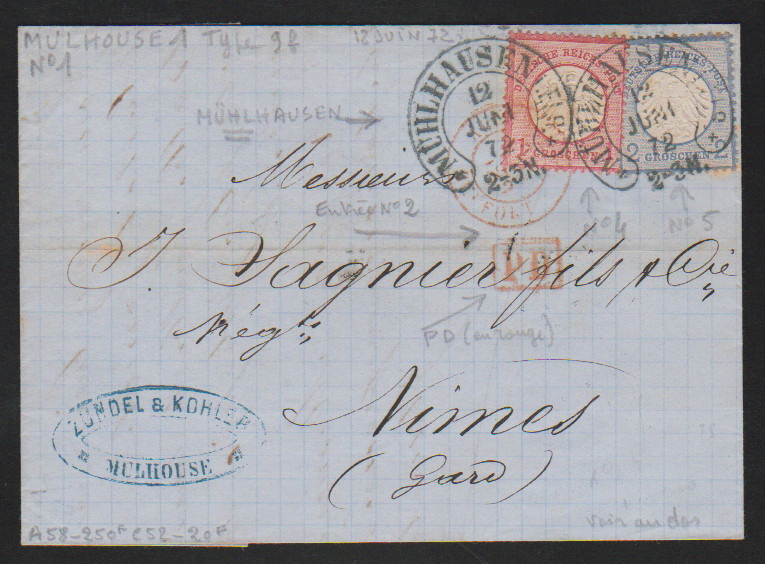 MULHOUSE 1 Type 9f 12 JUIN 72
N°1
MÜHLHAUSEN
MÜHLHAUSEN
12
JUNI
72
2-3N.
MÜHLHAUSEN
12
JUNI
72
2-3N.
DEUTSCHE REICHS-POST
1 GROSCHEN 1
DEUTSCHE REICHS-POST
2 GROSCHEN 2
Messieurs
Entrée N°2
N°4
N°5
J. Sagnier fils & Cie
P.D.
Négts
PD (en rouge)
Nîmes
(Gard)
ZUNDEL & KOHLER
MULHOUSE
A58-250F C52-20F
voir au dos